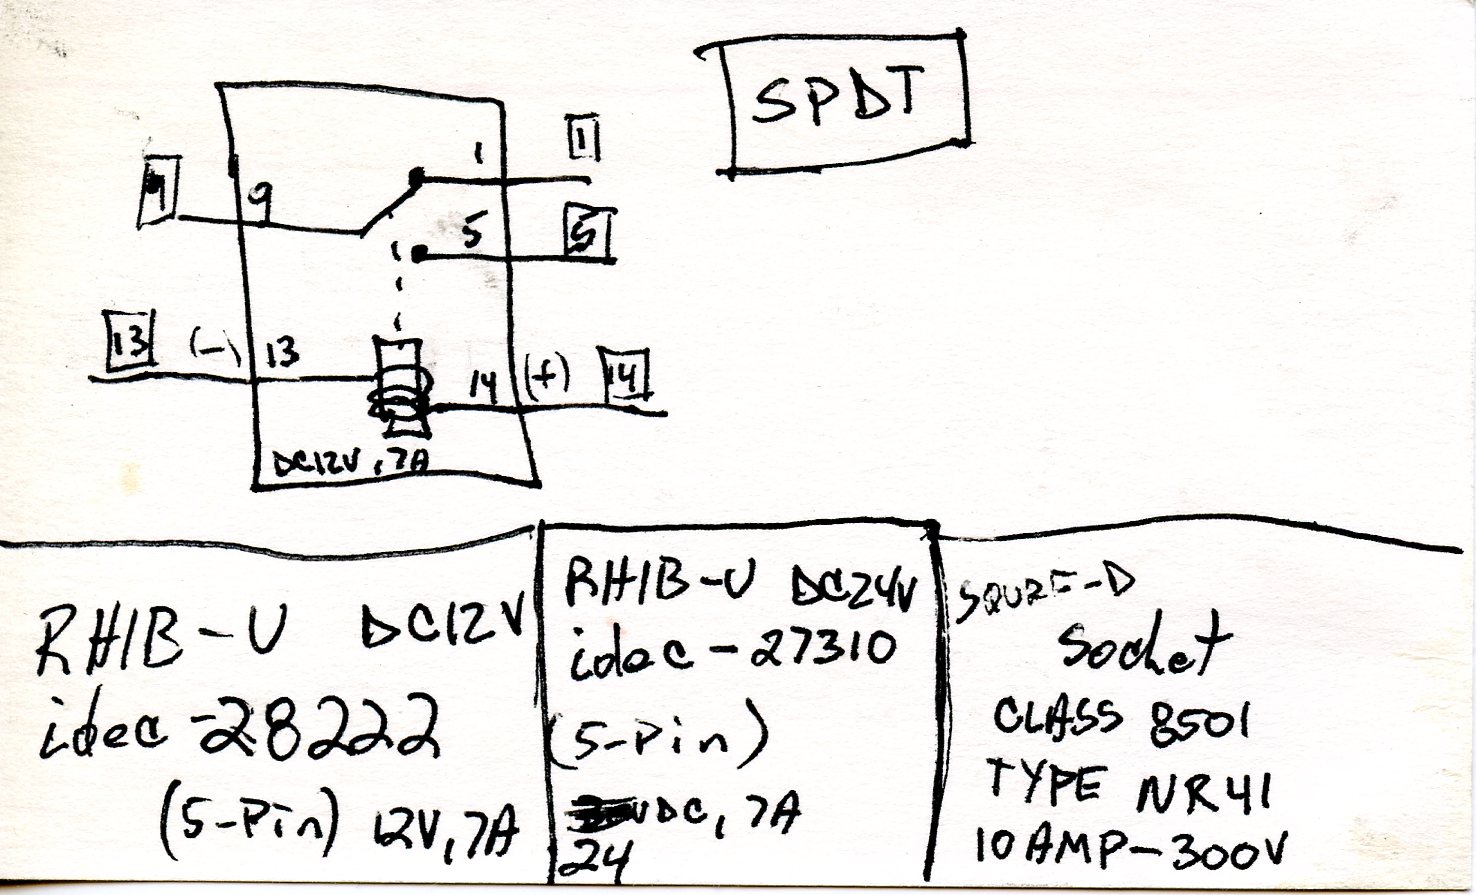 SPDT
1
1
9
9
5
5
13
(-)
13
14
(+)
14
DC12V, 7A
RH1B-U DC12V
idec-28222
(5-Pin) 12V, 7A
RH1B-U DC24V
idec-27310
(5-Pin)
VDC, 7A
24
SQURE-D
Socket
CLASS 8501
TYPE NR41
10AMP-300V